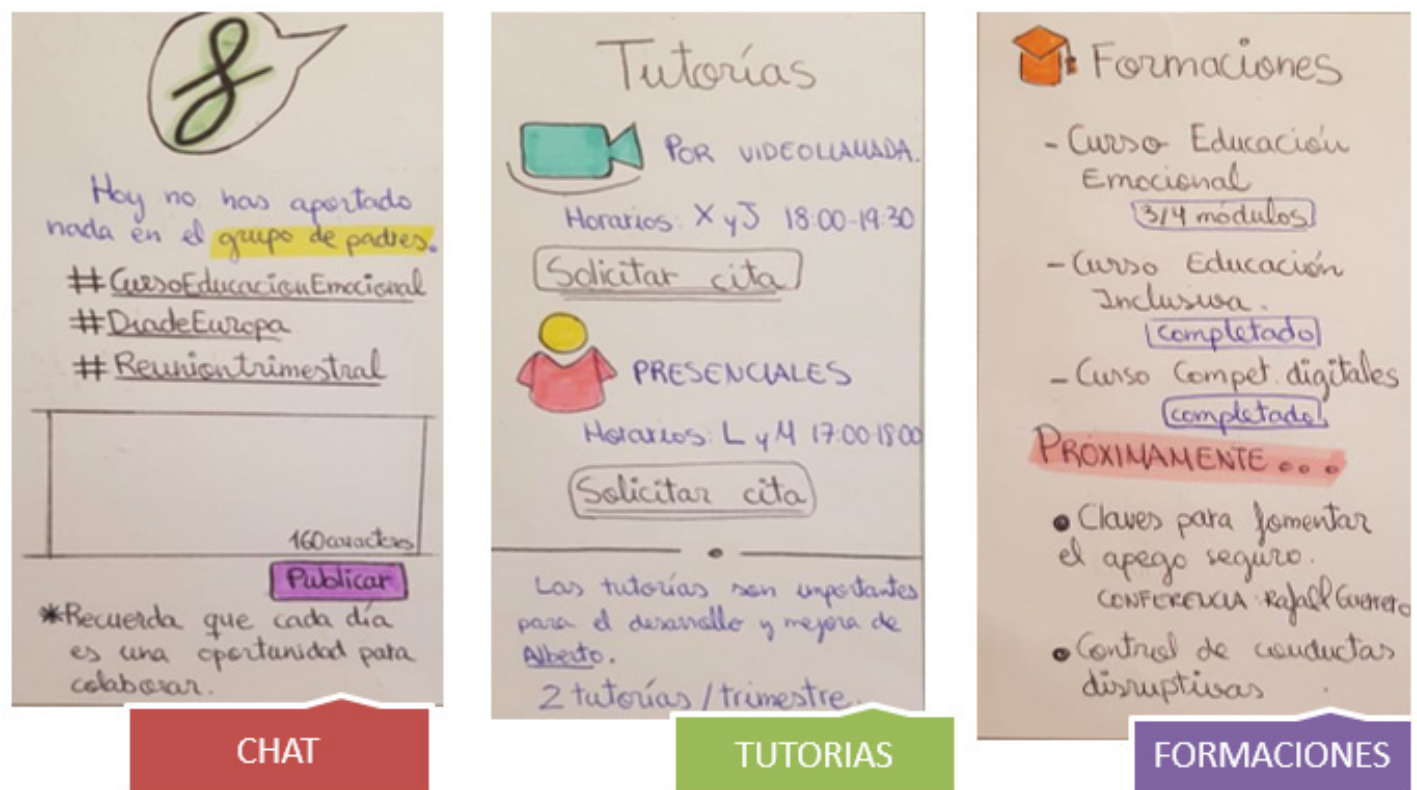 Hoy no has aportado
nada en el grupo de padres.
#CursoEducacionEmocional
#DiadeEuropa
#Reuniontrimestral
160 caracteres
Publicar
*Recuerda que cada día
es una oportunidad para
colaborar.
CHAT
Tutorías
POR VIDEOLLAMADA.
Horarios: X y J 18:00-19:30
Solicitar cita
PRESENCIALES
Horarios: L y M 17:00-18:00
Solicitar cita
Las tutorías son importantes
para el desarrollo y mejora de
Alberto.
2 tutorías / trimestre.
TUTORIAS
Formaciones
- Curso Educación
Emocional
3/4 módulos
- Curso Educación
Inclusiva.
completado
- Curso Compet. digitales
completado
PRÓXIMAMENTE...
• Claves para fomentar
el apego seguro.
CONFERENCIA: Rafael Guerrero
• Control de conductas
disruptivas
FORMACIONES